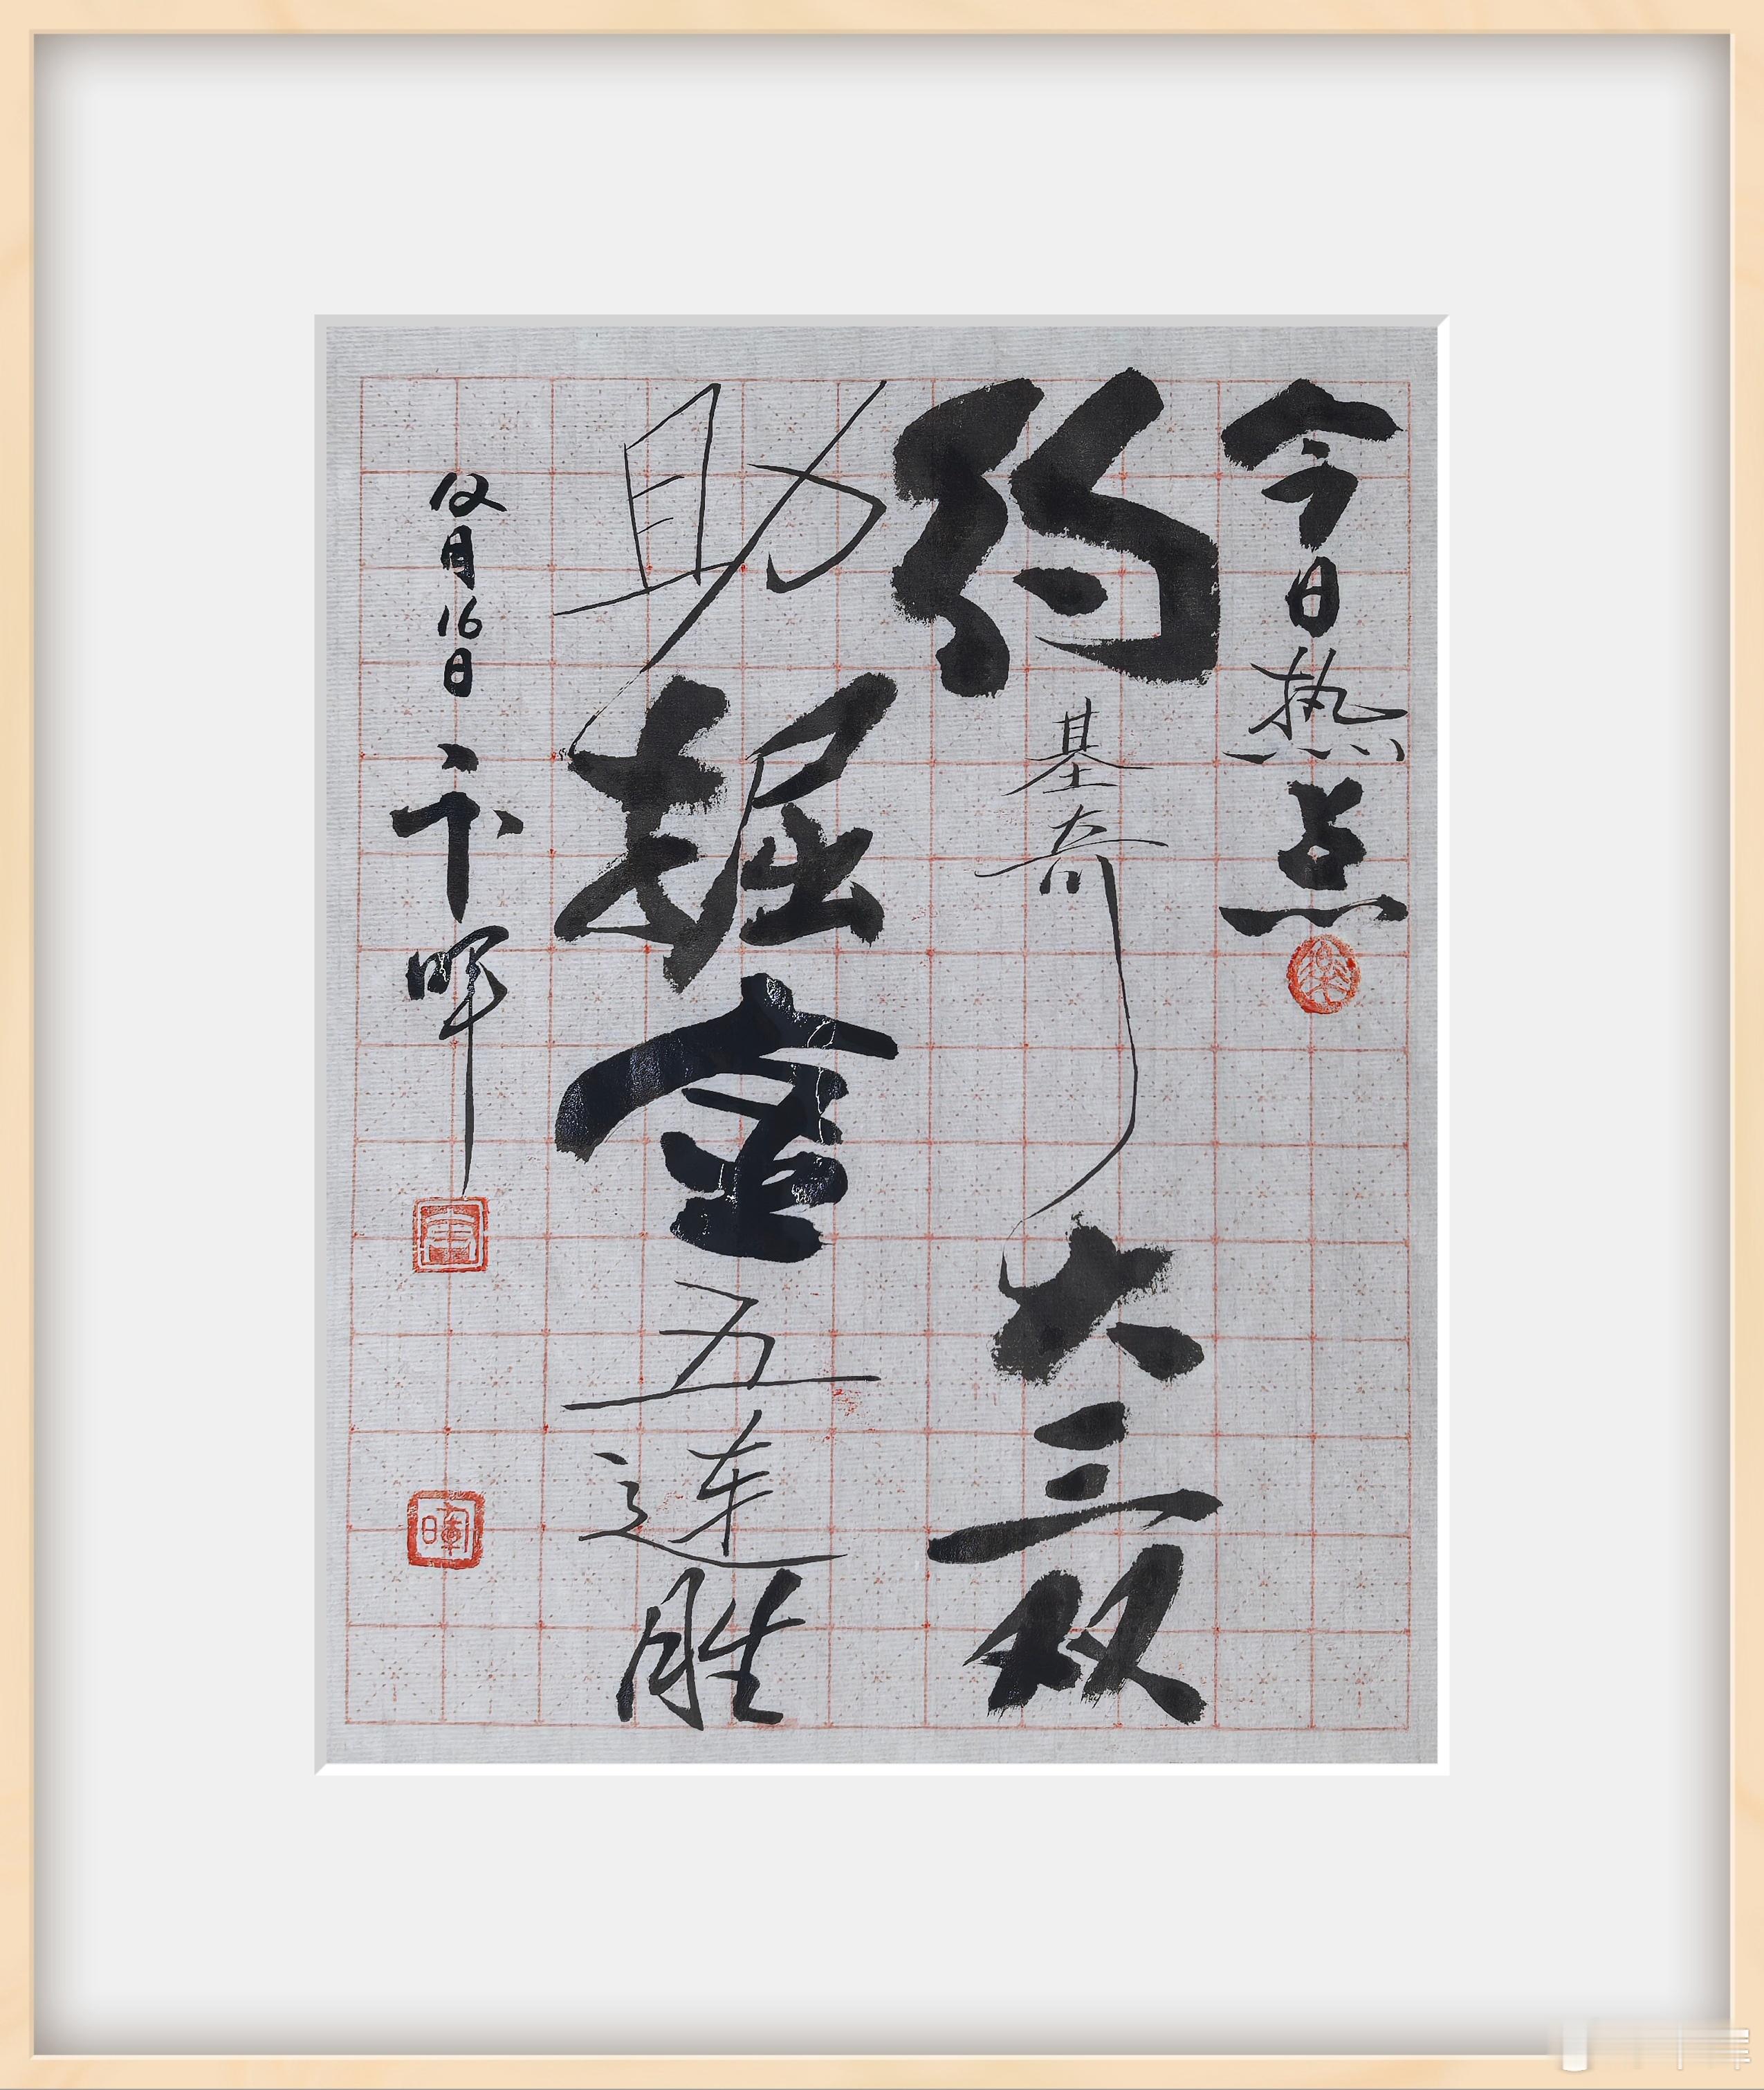 今日热点
约基奇大三双
助掘金五连胜
12月16日卞晖